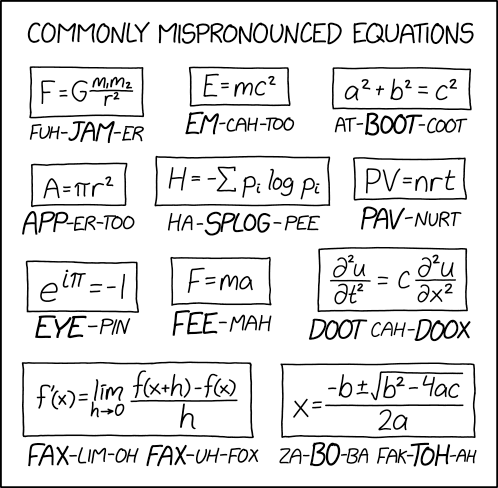 COMMONLY MISPRONOUNCED EQUATIONS
F=G m₁m₂/r²
FUH-JAM-ER
E=mc²
EM-CAH-TOO
a²+b²=c²
AT-BOOT-COOT
A=πr²
APP-ER-TOO
H=-∑ pᵢ log pᵢ
HA-SPLOG-PEE
PV=nrt
PAV-NURT
e^iπ=-1
EYE-PIN
F=ma
FEE-MAH
∂²u/∂t² = C ∂²u/∂x²
DOOT CAH-DOOX
f'(x)=lim h→0 f(x+h)-f(x)/h
FAX-LIM-OH FAX-UH-FOX
x= -b±√b²-4ac/2a
ZA-BO-BA FAK-TOH-AH